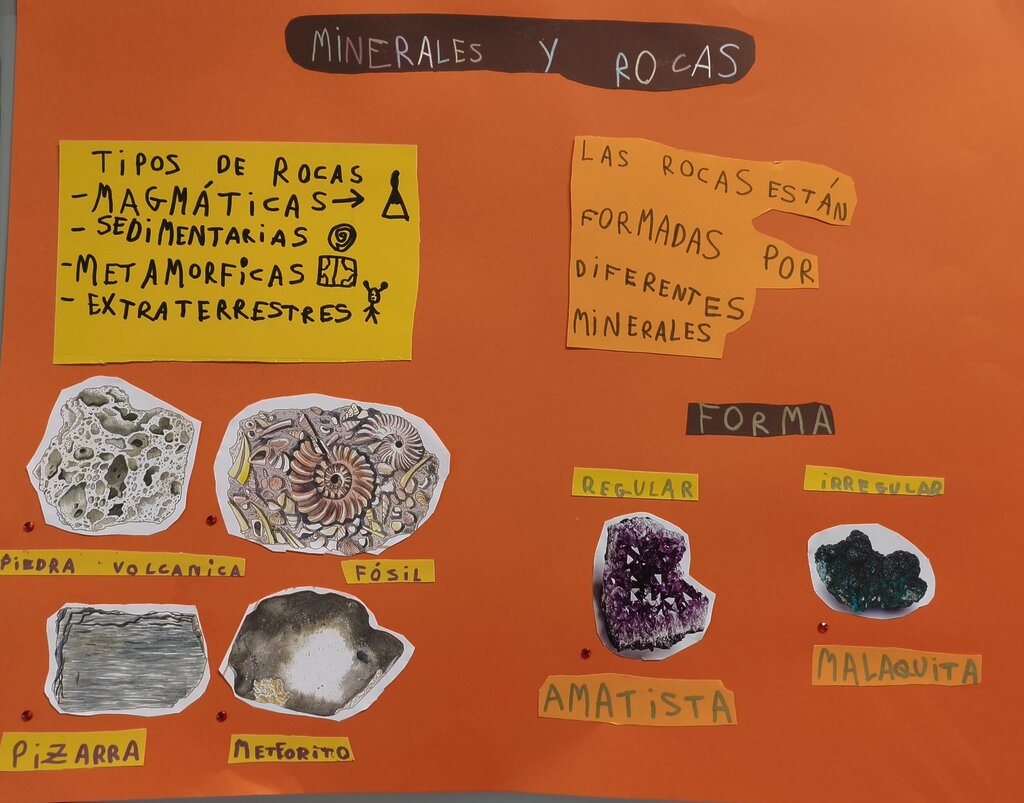 MINERALES Y ROCAS
TIPOS DE ROCAS
- MAGMÁTICAS →
- SEDIMENTARIAS
- METAMORFICAS
- EXTRATERRESTRES
LAS ROCAS ESTÁN
FORMADAS POR
DIFERENTES
MINERALES
FORMA
REGULAR
IRREGULAR
PIEDRA VOLCANICA
FÓSIL
AMATISTA
MALAQUITA
PIZARRA
METEORITO